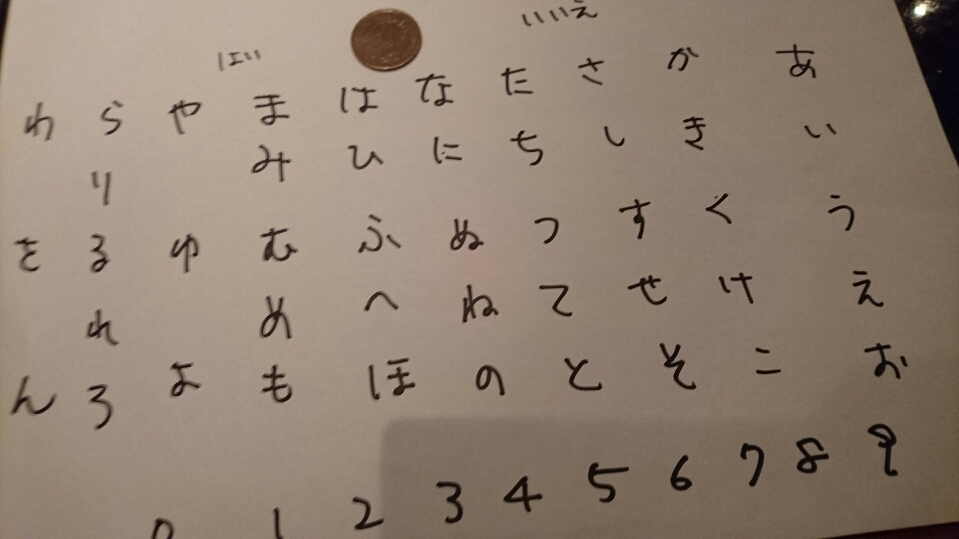 はい いいえ
わ ら や ま は な た さ か あ
り み ひ に ち し き い
を る ゆ む ふ ぬ つ す く う
れ め へ ね て せ け え
ん ろ よ も ほ の と そ こ お
0 1 2 3 4 5 6 7 8 9